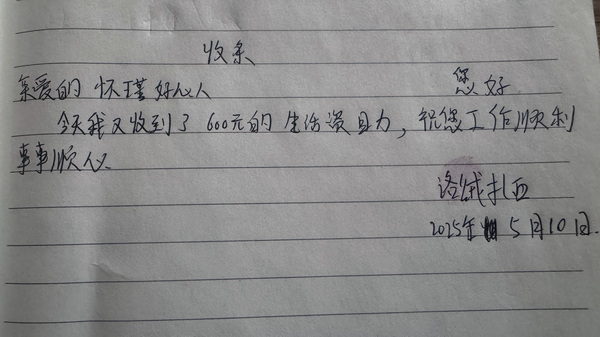 收条
亲爱的 怀瑾 好心人 您 好
今天我又收到了 600元的 生活资助，祝您工作顺利
事事顺心
洛绒扎西
2025年 5月10日.